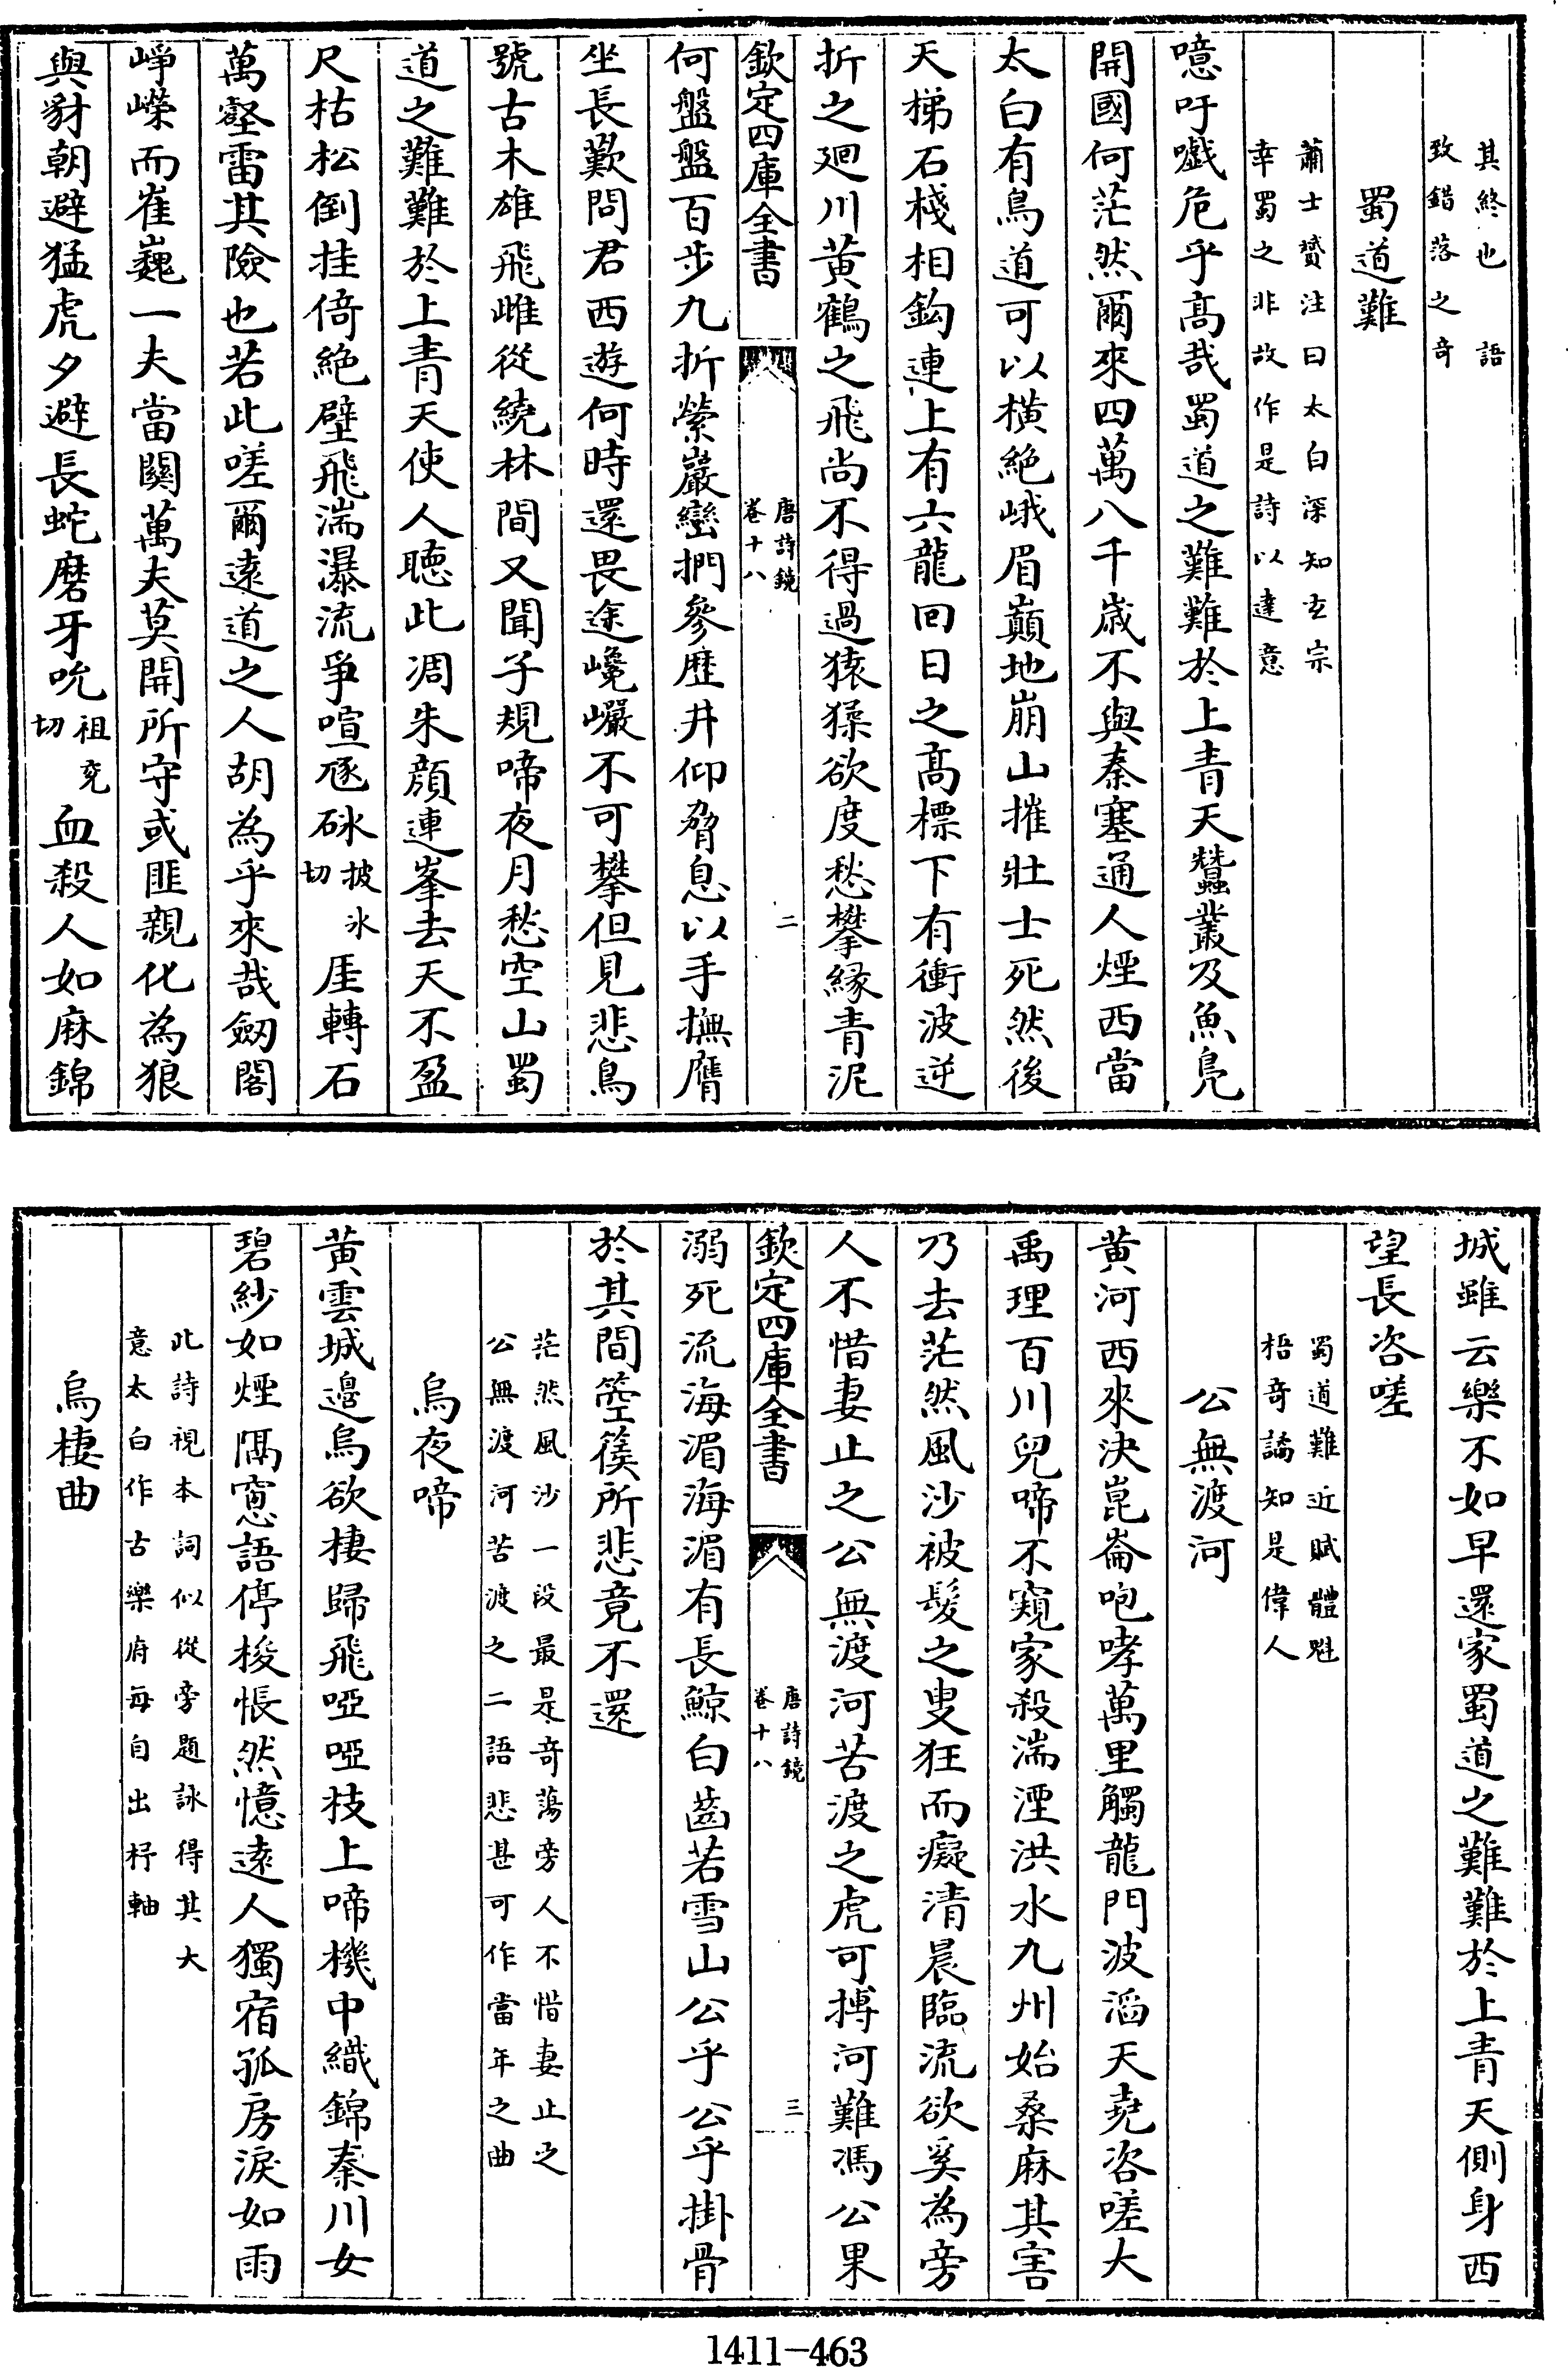 其終也　語
致錯落之奇
蜀道難
蕭士贇注曰太白深知𤣥宗
幸蜀之非故作是詩以達意
噫吁嚱危乎髙哉蜀道之難難於上青天蠶叢及魚鳬
開國何茫然爾來四萬八千歳不與秦塞通人煙西當
太白有鳥道可以横絶峨眉巔地崩山摧壯士死然後
天梯石棧相鈎連上有六龍回日之髙標下有衝波逆
折之廻川黄鶴之飛尚不得過猿猱欲度愁攀縁青泥
欽定四庫全書
唐詩鏡
卷十八
二
何盤盤百步九折縈巖巒捫參歴井仰脅息以手撫膺
坐長歎問君西遊何時還畏途巉巗不可攀但見悲鳥
號古木雄飛雌從繞林間又聞子規啼夜月愁空山蜀
道之難難於上青天使人聴此凋朱顔連峯去天不盈
尺枯松倒挂倚絶壁飛湍瀑流爭喧豗砯
披氷
切
厓轉石
萬壑雷其險也若此嗟爾逺道之人胡為乎來哉劒閣
崢嶸而崔巍一夫當關萬夫莫開所守或匪親化為狼
與豺朝避猛虎夕避長蛇磨牙吮
祖兖
切
血殺人如麻錦
城雖云樂不如早還家蜀道之難難於上青天側身西
望長咨嗟
蜀道難近賦體魁
梧奇譎知是偉人
公無渡河
黄河西來決崑崙咆哮萬里觸龍門波滔天堯咨嗟大
禹理百川兒啼不窺家殺湍湮洪水九州始桑麻其害
乃去茫然風沙被髮之叟狂而癡清晨臨流欲奚為旁
人不惜妻止之公無渡河苦渡之虎可搏河難馮公果
欽定四庫全書
唐詩鏡
卷十八
三
溺死流海湄海湄有長鯨白齒若雪山公乎公乎掛骨
於其間箜篌所悲竟不還
茫然風沙一段最是奇蕩旁人不惜妻止之
公無渡河苦渡之二語悲甚可作當年之曲
烏夜啼
黄雲城邉烏欲棲歸飛啞啞枝上啼機中織錦秦川女
碧紗如煙隔窻語停梭悵然憶逺人獨宿孤房淚如雨
此詩視本詞似從旁題詠得其大
意太白作古樂府每自出杼軸
烏棲曲
1411－463